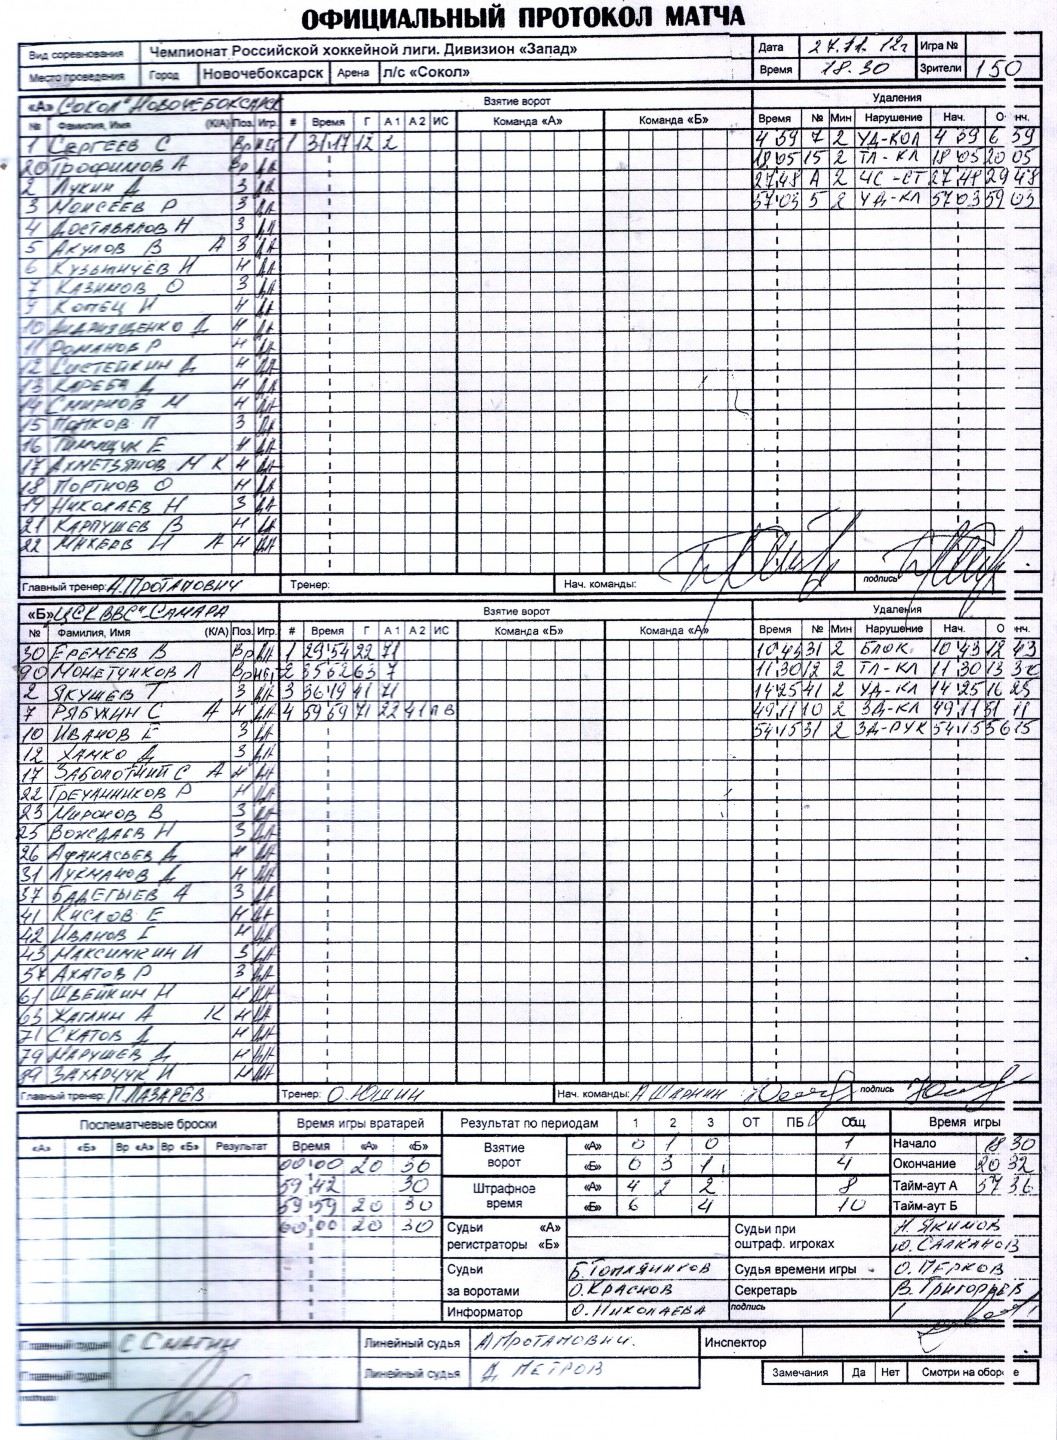 ОФИЦИАЛЬНЫЙ ПРОТОКОЛ МАТЧА
Вид соревнования Чемпионат Российской хоккейной лиги. Дивизион «Запад» Дата 27.11.12г Игра №
Место проведения Город Новочебоксарск Арена л/с «Сокол» Время 18.30 Зрители 150
«А» Сокол Новочебоксарск Взятие ворот Удаления
№ Фамилия, Имя (К/А) Поз. Игр. # Время Г А1 А2 ИС Команда «А» Команда «Б» Время № Мин Нарушение Нач. Онч.
1 Сергеев С Вр 1 31 17 12 2 4 59 7 2 УД-КОЛ 4 59 6 59
20 Трофимов А Вр ДА 18 05 15 2 ТЛ-КЛ 18 05 20 05
2 Лукин Д З ДА 27 48 А 2 ЧС-СТ 27 48 29 48
3 Моисеев Р З ДА 57 03 5 2 УД-КЛ 57 03 59 03
4 Доставалов Н З ДА
5 Акулов В А З ДА
6 Кузьмичев И Н ДА
7 Казимов О З ДА
9 Копец И Н ДА
10 Андрющенко Д Н ДА
11 Романов Р Н ДА
12 Систейкин Д Н ДА
13 Кареба Д Н ДА
14 Смирнов М Н ДА
15 Попков П З ДА
16 Тимищук Е Н ДА
17 Ахметзянов М К Н ДА
18 Портнов О Н ДА
19 Николаев Н З ДА
21 Карпушев В Н ДА
22 Михеев И А Н ДА
Главный тренер: А.Протапович Тренер: Нач. команды: подпись
«Б» ЦСК ВВС"-Самара Взятие ворот Удаления
№ Фамилия, Имя (К/А) Поз. Игр. # Время Г А1 А2 ИС Команда «Б» Команда «А» Время № Мин Нарушение Нач. Онч.
30 Еремеев В Вр ДА 1 29 54 22 71 10 43 31 2 БЛОК. 10 43 12 43
90 Монетчиков Л Вр НЕТ 2 35 52 63 7 11 30 12 2 ТЛ-КЛ 11 30 13 30
2 Якушев Т З ДА 3 36 19 41 71 14 25 41 2 УД-КЛ 14 25 16 25
7 Рябухин С А Н ДА 4 59 59 71 22 41 ПВ 49 11 10 2 ЗД-КЛ 49 11 51 11
10 Иванов Е З ДА 54 15 31 2 ЗД-РУК 54 15 56 15
12 Хамко Д З ДА
17 Заболотний С А Н ДА
22 Гречанников Р Н ДА
23 Миронов В З ДА
25 Вождаев Н З ДА
26 Афанасьев Д Н ДА
31 Лукманов Д Н ДА
37 Бадегыев А З ДА
41 Кислов Е Н ДА
42 Иванов Г Н ДА
43 Максимкин И З ДА
57 Ахатов Р З ДА
61 Швейкин Н Н ДА
63 Жаглин А К Н ДА
71 Скатов Д Н ДА
79 Марушев Д Н ДА
99 Захарчук И Н ДА
Главный тренер: П.Лазарев Тренер: О.Юшин Нач. команды: А Шаркин подпись
Послематчевые броски Время игры вратарей Результат по периодам 1 2 3 ОТ ПБ Общ Время игры
«А» «Б» Вр «А» Вр «Б» Результат Время «А» «Б» Взятие ворот «А» 0 1 0 1 Начало 18 30
00 00 20 30 «Б» 0 3 1 4 Окончание 20 32
59 42 30 Штрафное время «А» 4 2 2 8 Тайм-аут А 57 36
59 59 20 30 «Б» 6 4 10 Тайм-аут Б
60 00 20 30 Судьи «А» Судьи при Н. Якимов
регистраторы «Б» оштраф. игроках Ю. Салканов
Судьи Б.Топлянинков Судья времени игры О. Перков
за воротами О.Краснов Секретарь В. Григорьев
Информатор О.Николаева подпись
Главный судья С Смагин Линейный судья А Протапович. Инспектор
Главный судья Линейный судья Д Петров Замечания Да Нет Смотри на оборе
подпись